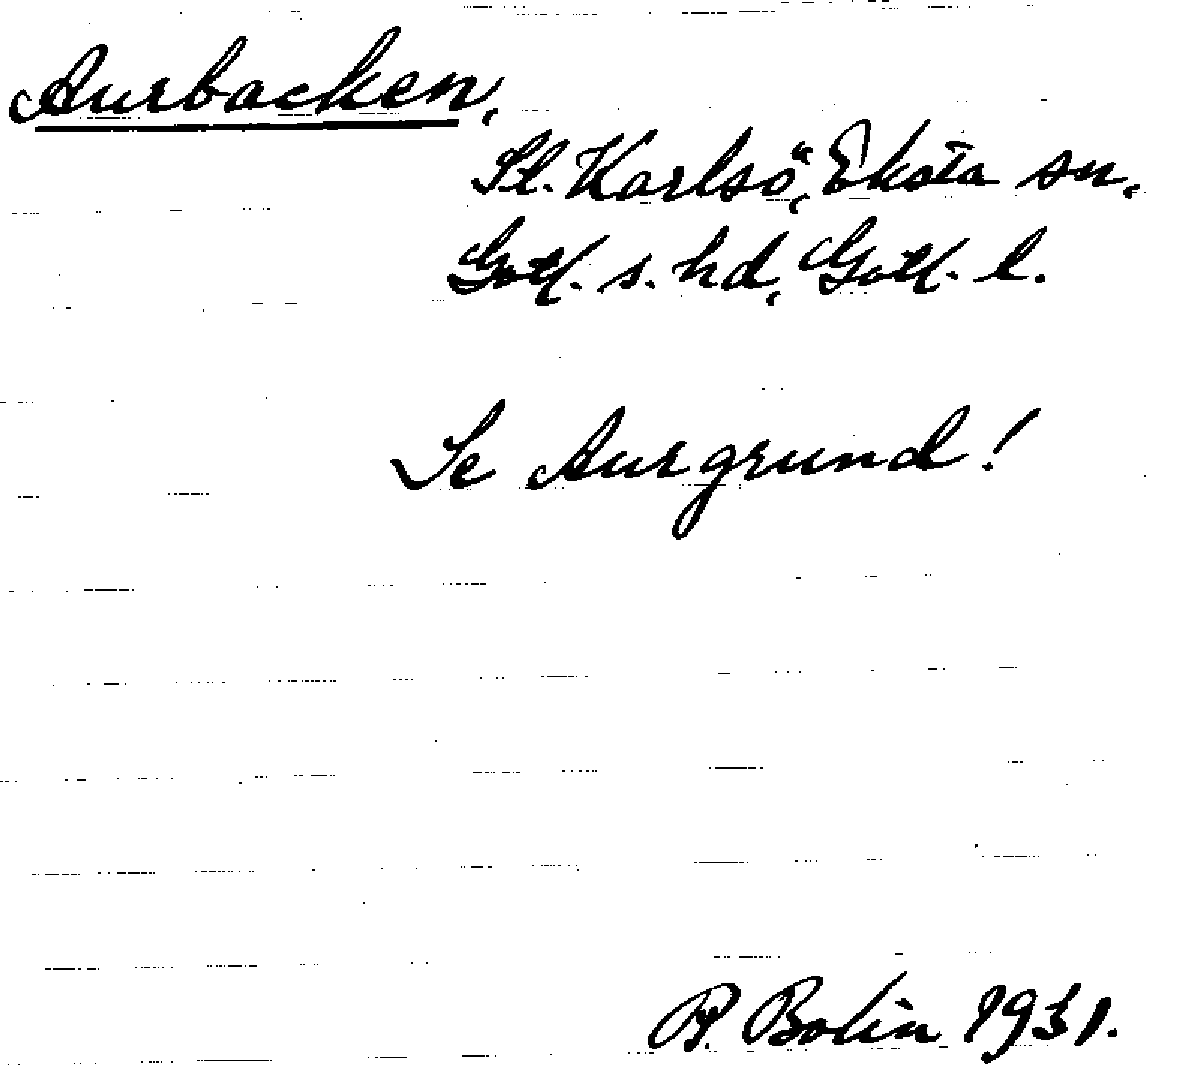 Aurbacken,
St. Karlsö, Eksta sn,
Gotl. s. hd, Gotl. l.
Se Aurgrund!
P. Bolin 1931.